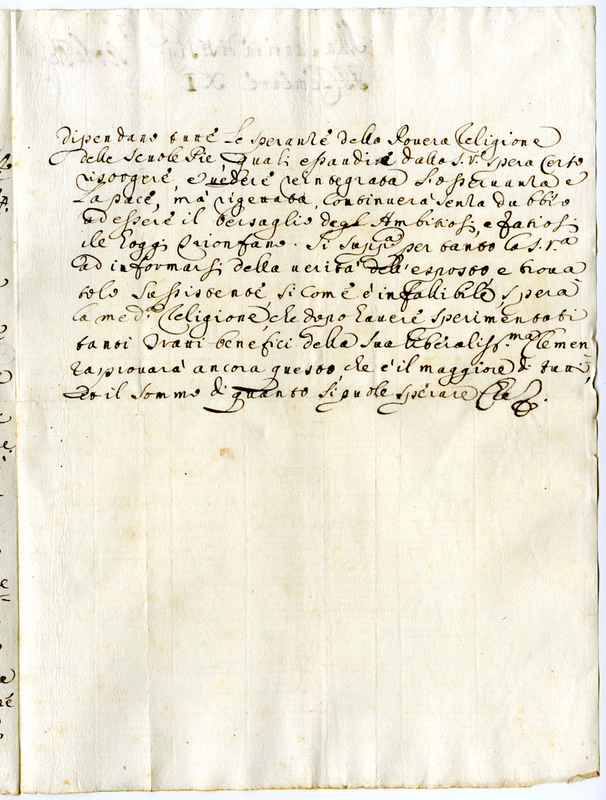 dipendano tutte le speranze della Povera Religione
delle Scuole Pie, quali esaudite dalla S.V. spera certo
risorgere, e vedere reintegrata l'osservanza e
la pace, ma rigettata, continuerà senza dubbio
ad essere il bersaglio degl'Ambitiosi, e fatiosi
che hoggi trionfano. Si supp.ca per tanto la S.V.ra
ad informarsi della verità dell'esposto e trova
tolo sussistente, si come è infallibile spera
la med.a Religione che dopo havere sperimentati
tanti gravi benefici della sua liberaliss.ma Clemen
za provarà ancora questo che è il maggiore di tutti,
et il sommo di quanto si puole sperare Che